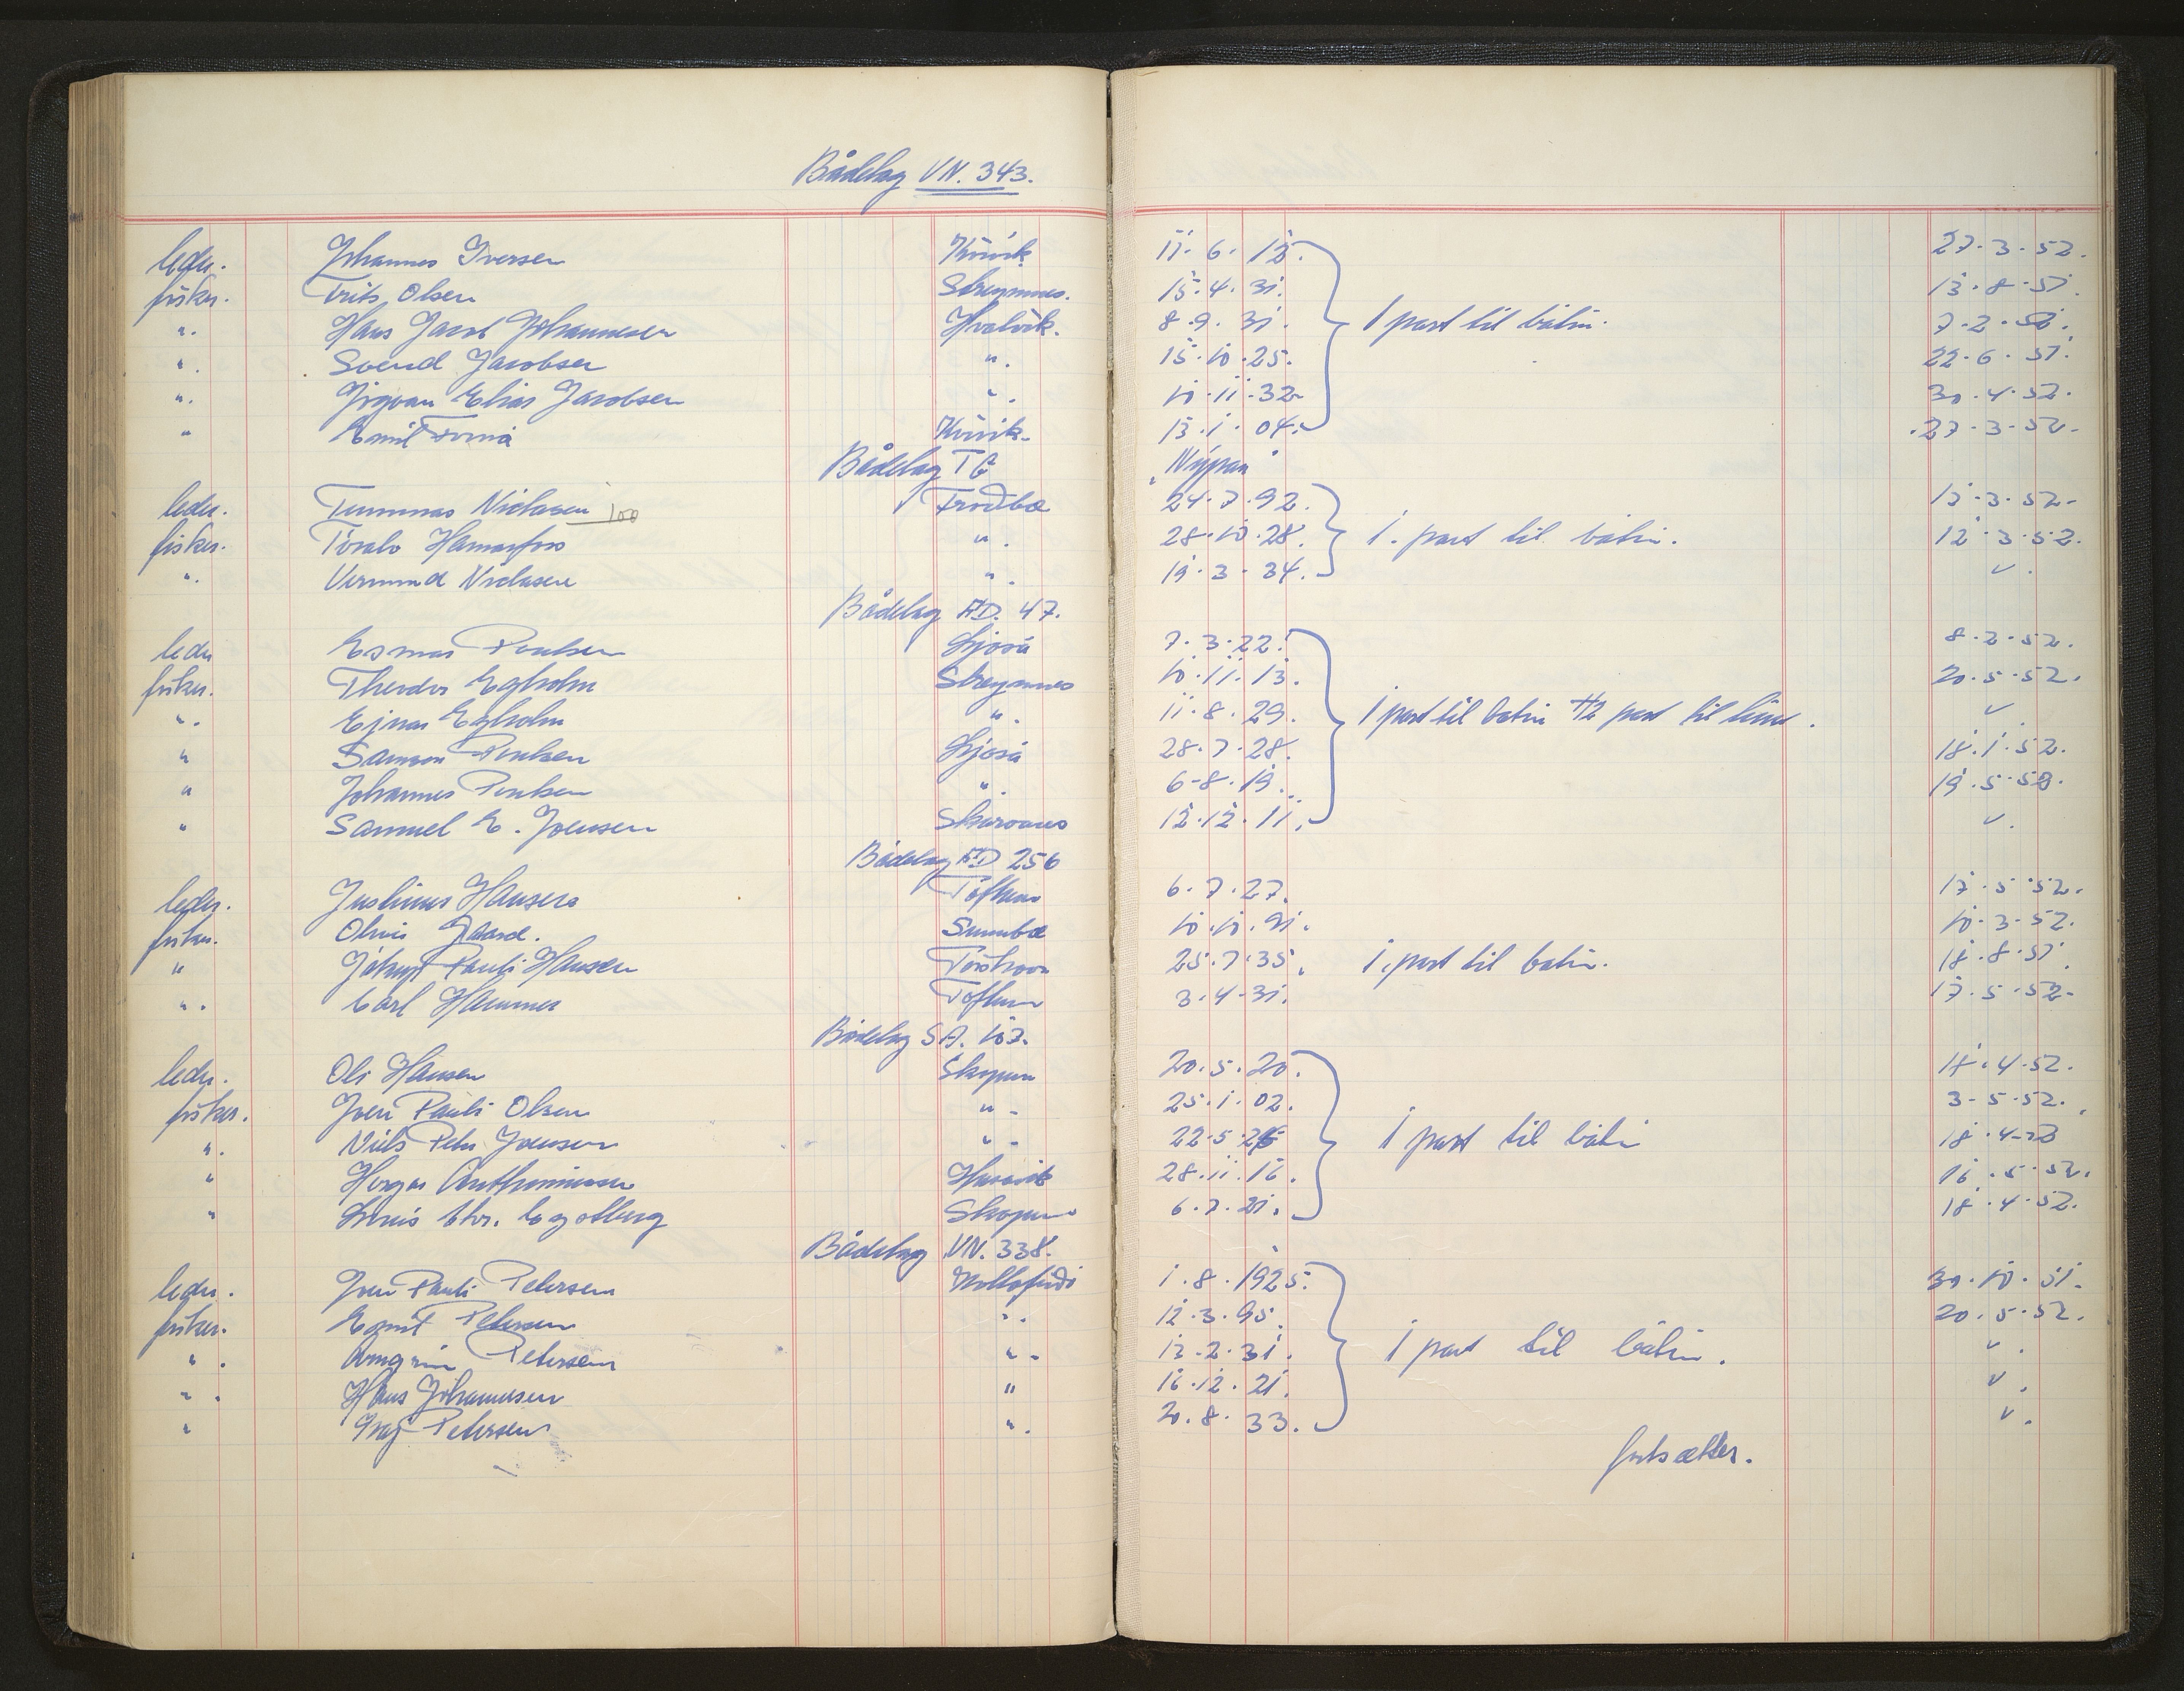 Bådelag VN. 343.
leder. Johannes Iversen Kvívík 11. 6. 12. 27.3.52.
fisker. Frits Olsen Streymnes. 15.4. 31. 13.8.51.
". Hans Jacob Johannesen Hvalvík. 8.9. 31. 7.2.52.
". Svend Jacobsen ". 15.10.25. 22.6.51.
". Jógvan Elias Jacobsen ". 10.11.32 30.4.52.
" Emil Kvívík. 13.1.04. 27.3.52.
1 part til bátin.
Bådelag TG "Nýpan"
leder. Tummas Niclasen 100 Froðba 24.7.92. 13.3.52.
fisker. Tórálv Hamarfoss ". 28.10.28. 12.3.52.
". Vermund Niclasen ". 19.3.34. ".
1. part til bátin.
Bådelag FD. 47.
leder Esmar Poulsen Ljósá 7.3.22. 8.2.52.
fisker. Theodor Egholm Streymnes 10.11.13. 20.5.52.
". Ejnar Egholm ". 11.8.29. ".
" Samson Poulsen Ljósá 28.7.28. 18.1.52.
" Johannes Poulsen ". 6-8.19. 19.5.52.
" Samuel E. Joensen Skarvanes 12.12.11. ".
1 part til bátin 1/2 part til línur.
Bådelag FD 256
leder. Justinus Hansen Toftum 6.7.27. 17.5.52.
fisker. Olivur Gaard. Sumba 10.10.91. 10.3.52.
" Jákup Pauli Hansen Tórshavn 25.7.35. 18.8.51.
". Carl Hammer Toftum 3.4.31. 17.5.52.
1. part til bátin.
Bådelag SA. 107.
leder. Oli Hansen Skopun 20.5.20. 14.4.52.
fisker. Joen Pauli Olsen ". 25.1.02. 3-5.52.
". Niels Peter Joensen ". 22.5.26 18.4-52
" Horgar Anthoniussen Húsavík 28.11.16. 16.5.52.
" Louis Chr. Egotberg Skopun 6.7.21. 18.4.52.
1 part til bátin
Bådelag VN. 338.
leder. Joen Pauli Petersen Kollafirði 1.8.1925. 30.10.51.
fisker. Esmit Petersen ". 12.3.95. 20.5.52.
". Arngrim Petersen ". 13.2.31. ".
". Hans Johannesen " 16.12.21. ".
" Petersen ". 20.8.33. ".
1 part til bátin.
fortsætter.